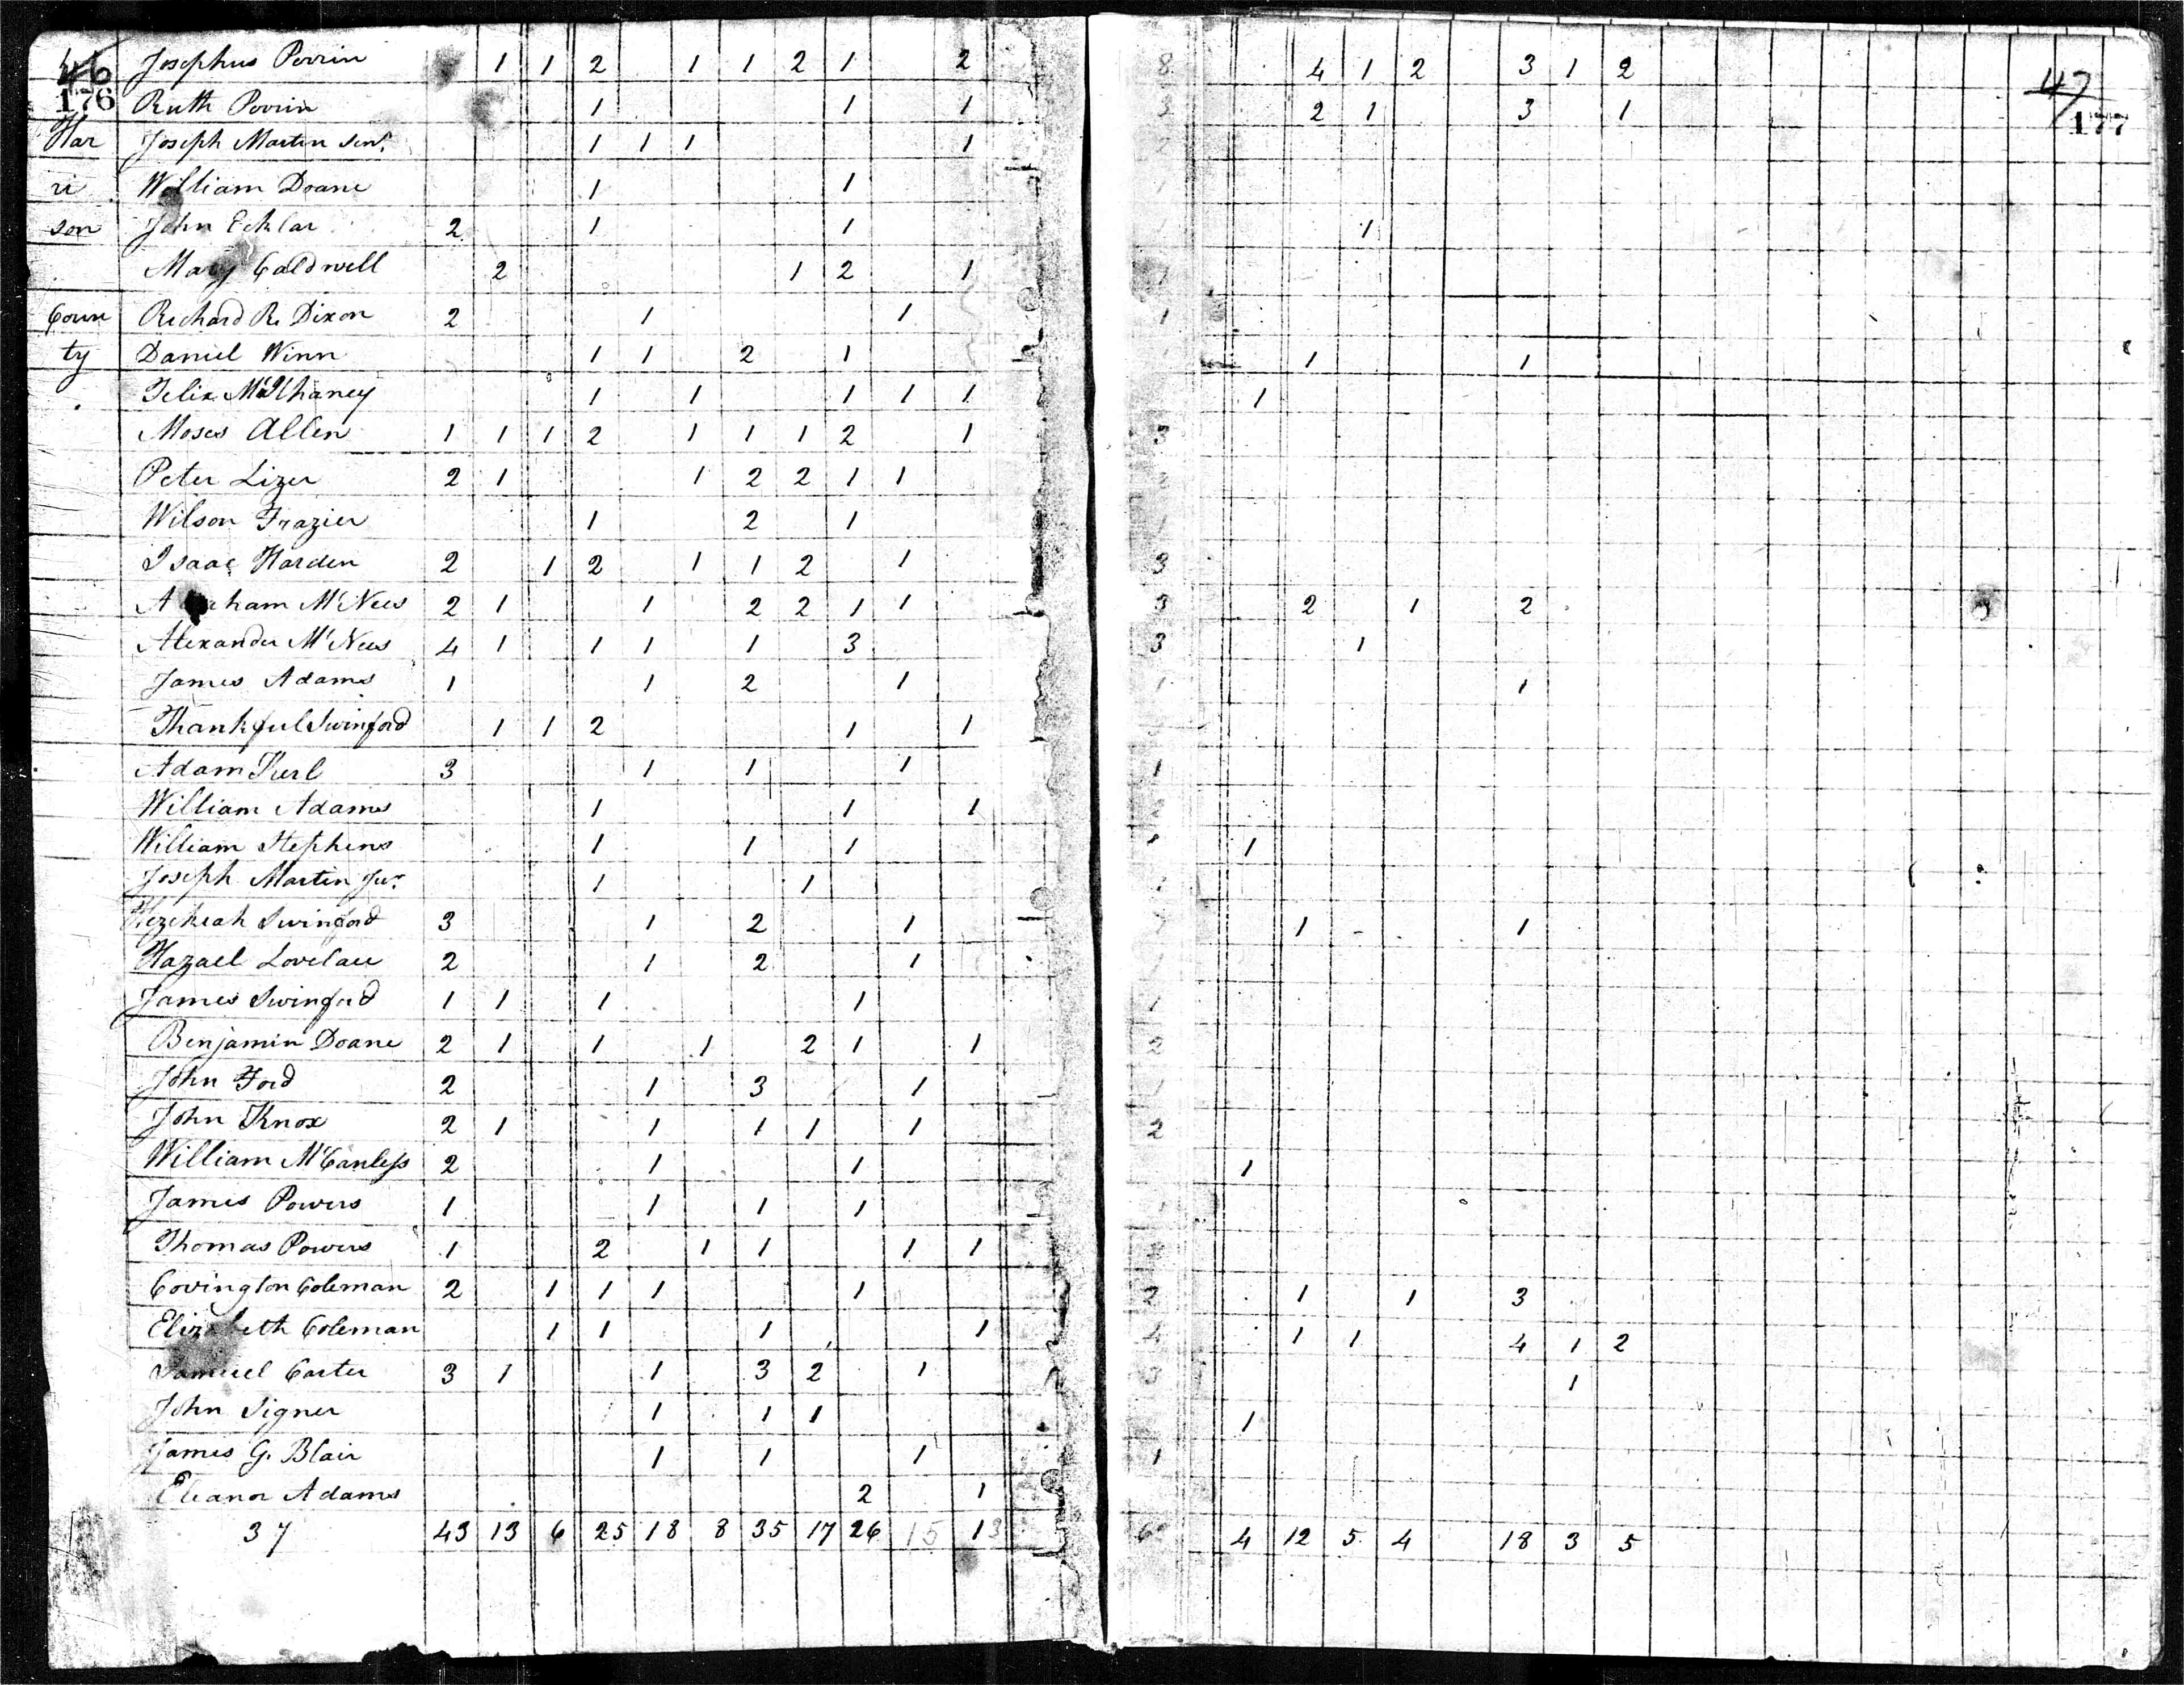 46 Josephus Perrin 1 1 2 1 1 2 1 2 8 4 1 2 3 1 2 47
176 Ruth Perrin 1 1 1 2 1 3 1 177
Har Joseph Martin Senr. 1 1 1 1
ri William Doane 1 1
son John Ecklar 2 1 1 1
Mary Caldwell 2 1 2 1
Coun Richard R. Dixon 2 1 1 1
ty Daniel Winn 1 1 2 1 1 1
Felix 1 1 1 1 1 1
Moses Allen 1 1 1 2 1 1 1 2 1 3
Peter Lizer 2 1 1 2 2 1 1
Wilson Frazier 1 2 1
Isaac Harden 2 1 2 1 1 2 1 3
McNees 2 1 1 2 2 1 1 3 2 1 2
Alexander McNees 4 1 1 1 1 3 3 1
James Adams 1 1 2 1 1 1
Thankful Swinford 1 1 2 1 1
Adam Purl 3 1 1 1 1
William Adams 1 1 1
William Stephens 1 1 1 1
Joseph Martin Jur. 1 1
Hezekeah Swinford 3 1 2 1 1 1
Hazael Lovelace 2 1 2 1
James Swinford 1 1 1 1 1
Benjamin Doane 2 1 1 1 2 1 1
John Ford 2 1 3 1
John Knox 2 1 1 1 1 1 2
William McCanless 2 1 1 1
James Powers 1 1 1 1
Thomas Powers 1 2 1 1 1 1
Covington Coleman 2 1 1 1 1 2 1 1 3
Elizabeth Coleman 1 1 1 1 1 1 4 1 2
Samuel Carter 3 1 1 3 2 1 3 1
John Signer 1 1 1 1
James G. Blair 1 1 1 1
Eleanor Adams 2 1
37 43 13 6 25 18 8 35 17 26 15 13 4 12 5 4 18 3 5